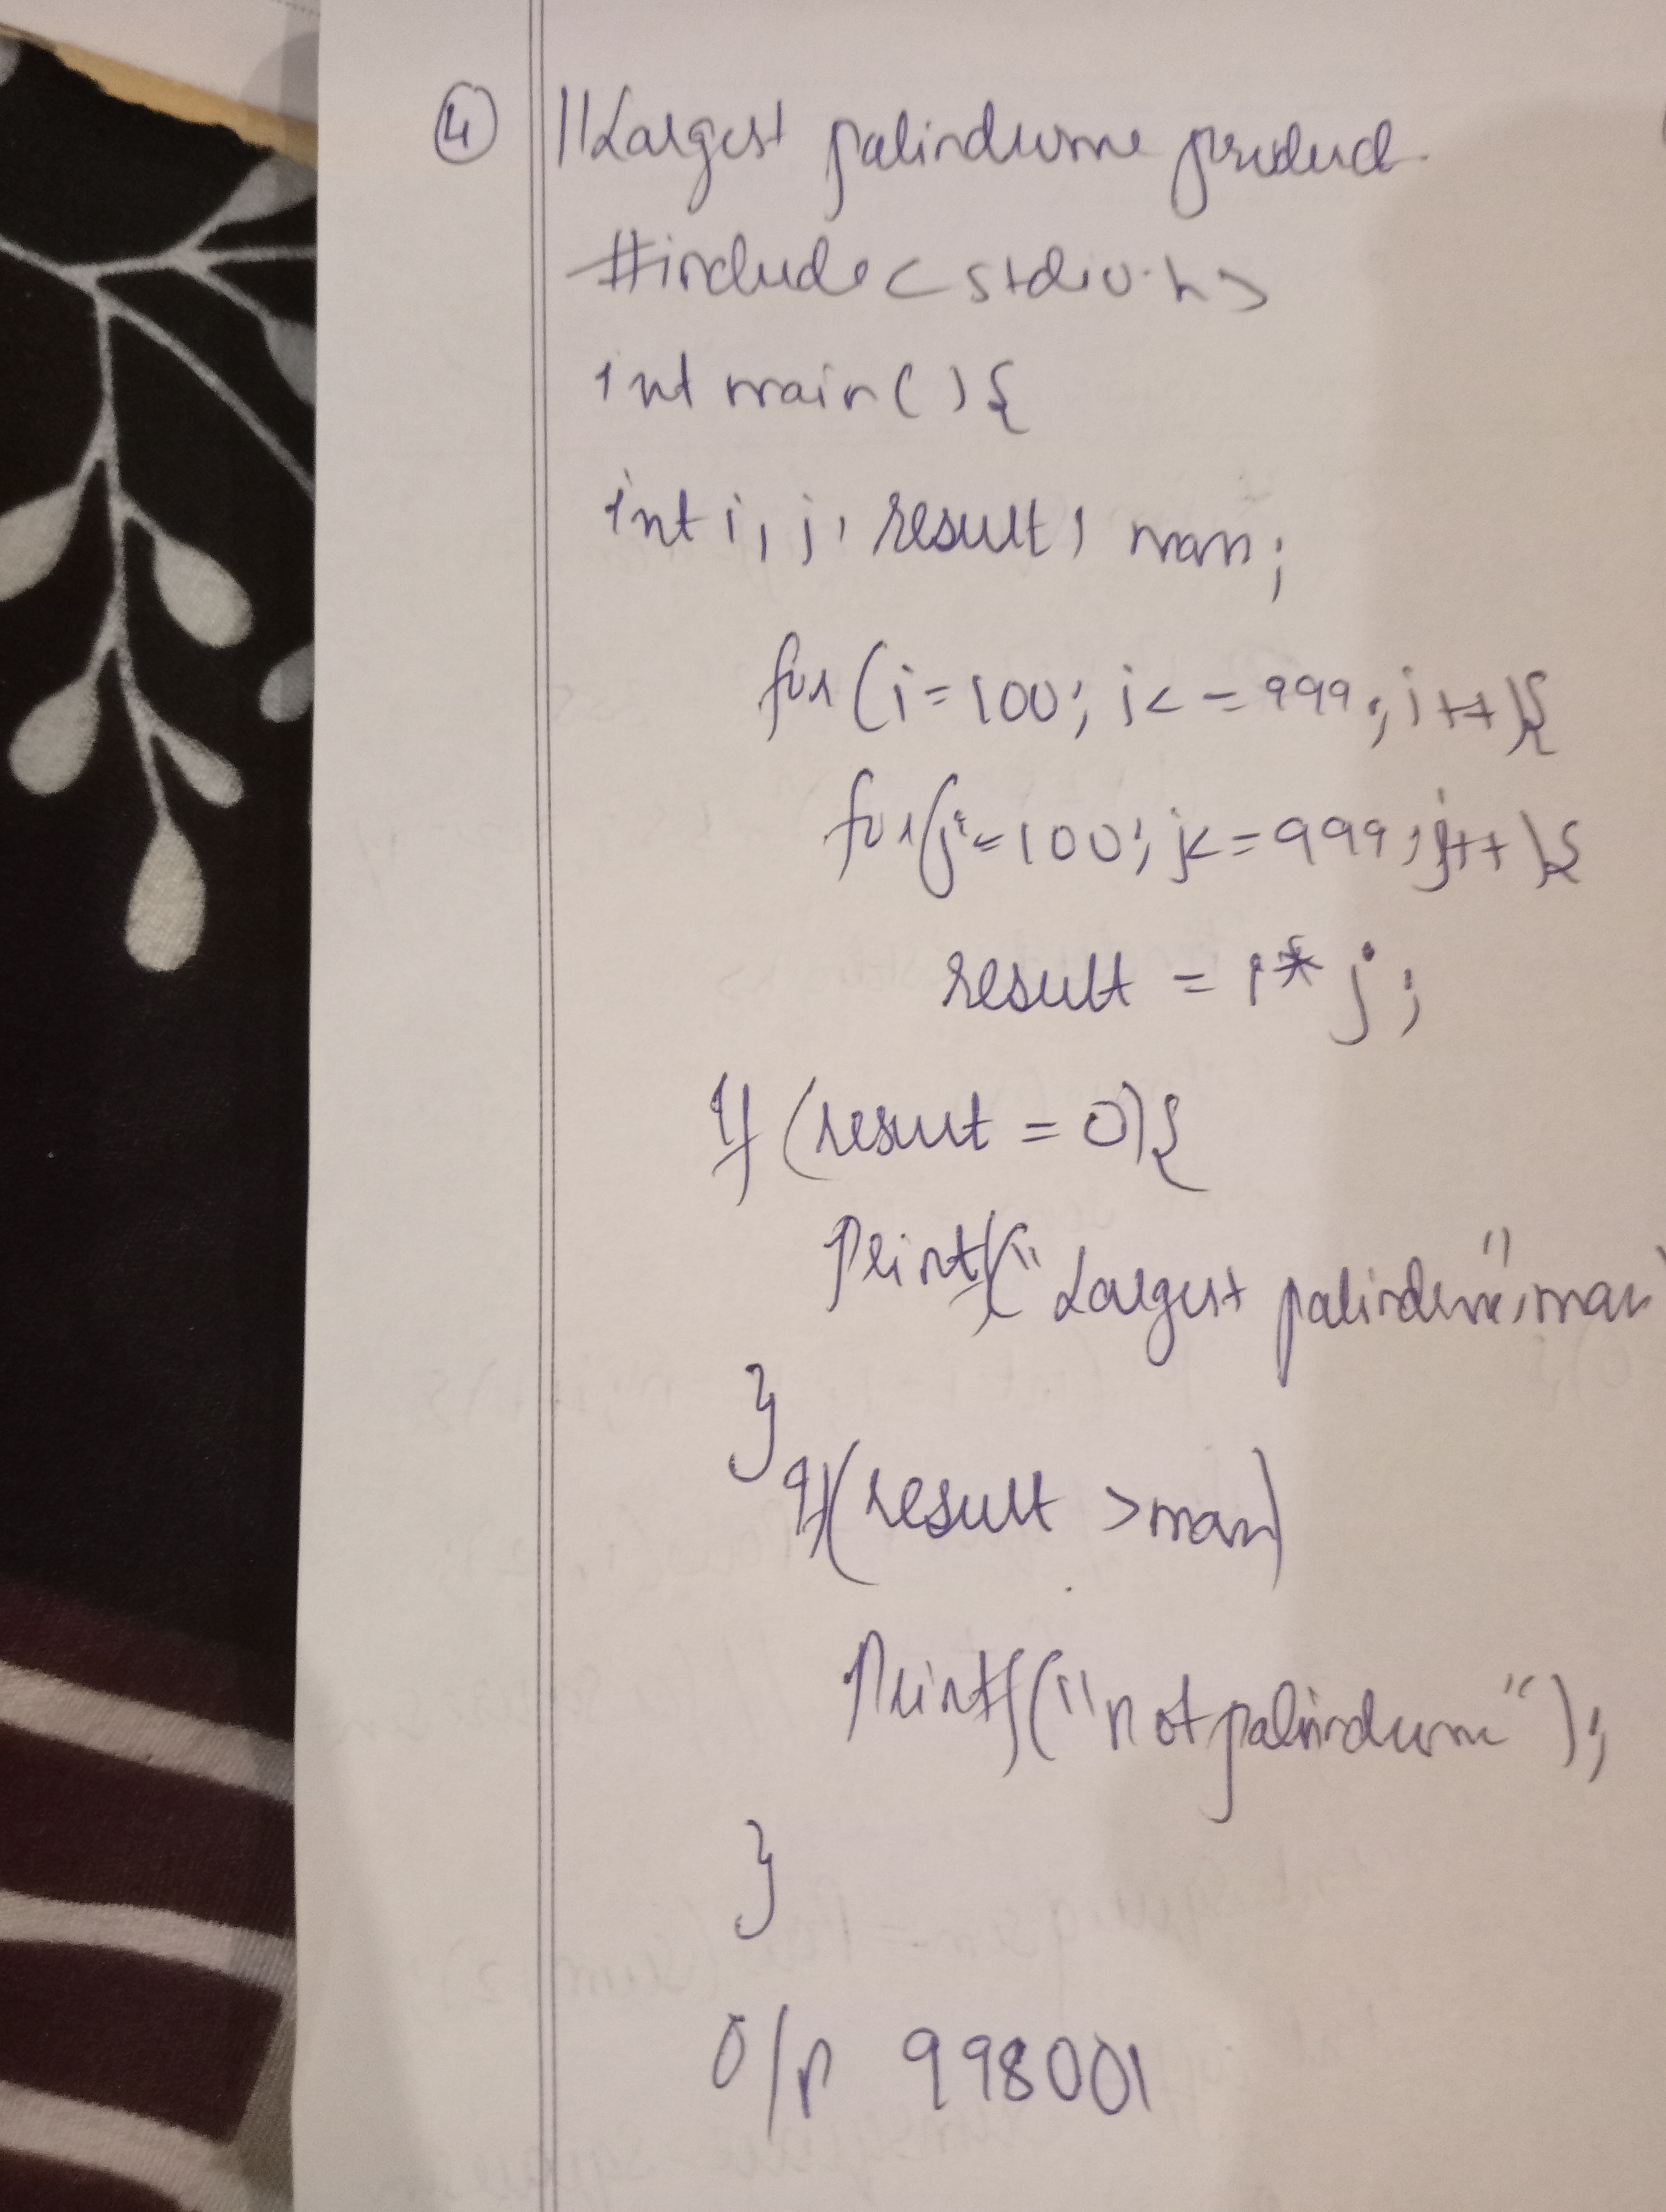 ④ //Largest palindrome product
#include<stdio.h>
int main(){
int i, j, result, max;
for(i=100; i<=999; i++){
for(j=100; j<=999; j++){
result = i*j;
if(result = 0){
printf("Largest palindrome", max
}
if(result >max)
printf("not palindrome");
}
O/P 998001